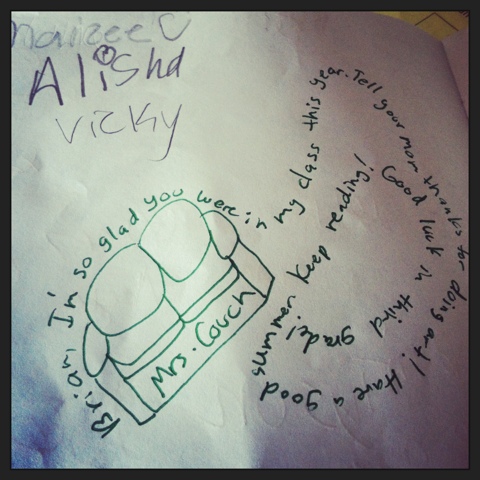 Alisha
Vicky
Brian, I'm so glad you were in my class this year. Tell your mom thanks for doing art! Have a good summer. Keep reading! Good luck in third grade!
Mrs. Couch